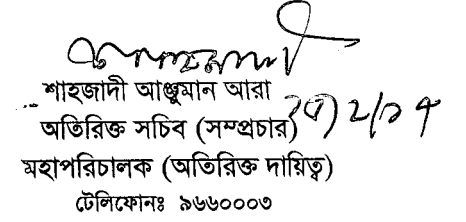 শাহজাদী আঞ্জুমান আরা
অতিরিক্ত সচিব (সম্প্রচার)
মহাপরিচালক (অতিরিক্ত দায়িত্ব)
টেলিফোনঃ ৯৬৬০০০৩